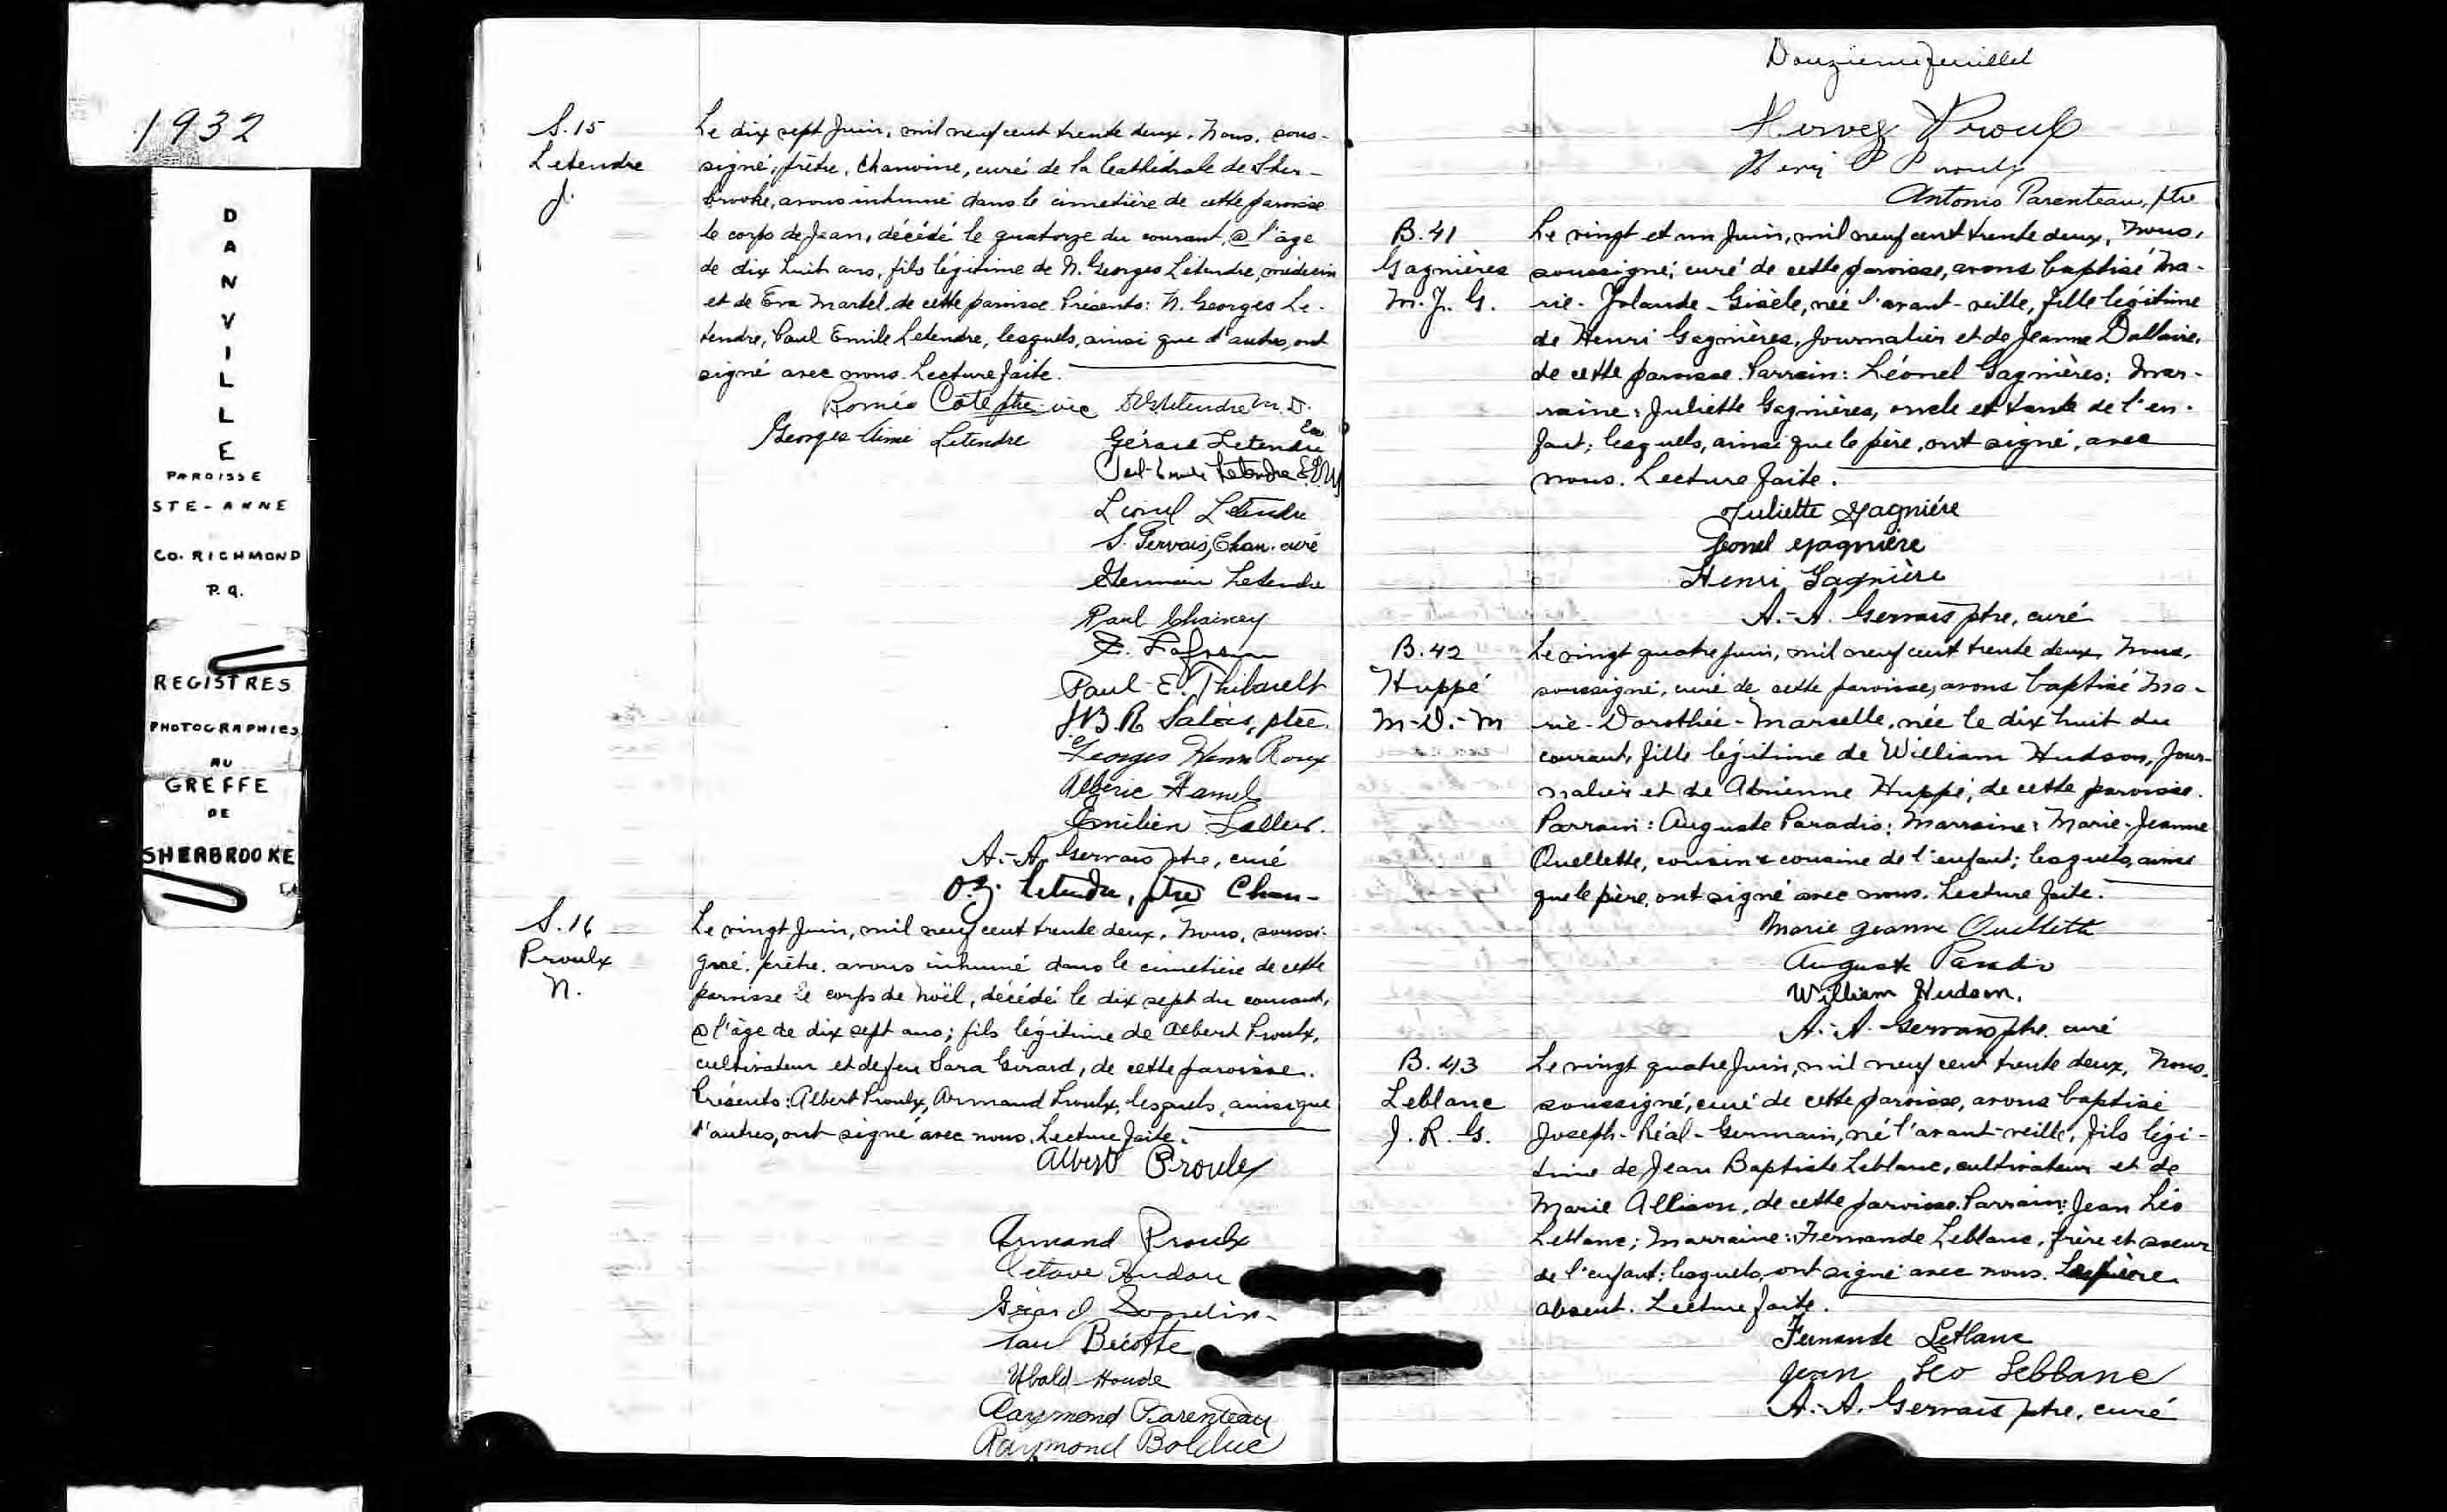 1932
DANVILLE
PAROISSE
STE-ANNE
CO. RICHMOND
P.Q.
REGISTRES
PHOTOGRAPHIES
AU
GREFFE
DE
SHERBROOKE
S. 15
Letendre
J.
Le dix sept Juin, mil neuf cent trente deux. Nous, sous-
signé, prêtre, Chanoine, curé de la Cathédrale de Sher-
brooke, avons inhumé dans le cimetière de cette paroisse
le corps de Jean, décédé le quatorze du courant, @ l'âge
de dix huit ans, fils légitime de N. Georges Letendre, médecin
et de Eva Martel, de cette paroisse. Présents: N. Georges Le-
tendre, Paul Emile Letendre, lesquels, ainsi que d'autres, ont
signé avec nous. Lecture faite.
Roméo Côté ptre vic Letendre M.D.
Georges Aimé Letendre Gérard Letendre
Paul-Emile Letendre
Lionel Letendre
S. Gervais, Chan. curé
Germain Letendre
Paul Chainey
Paul-E. Thibault
J.B.R. Salois, ptre
Georges Henri Roux
Albéric Hamel
Emilien
A.-A. Gervais ptre, curé
O.Z. Letendre, ptre Chan-
S. 16
Proulx
N.
Le vingt Juin, mil neuf cent trente deux. Nous, soussi-
gné, prêtre, avons inhumé dans le cimetière de cette
paroisse le corps de Noël, décédé le dix sept du courant,
@ l'âge de dix sept ans; fils légitime de Albert Proulx,
cultivateur et de feu Sara Girard, de cette paroisse.
Présents: Albert Proulx, Armand Proulx, lesquels, ainsi que
d'autres, ont signé avec nous. Lecture faite.
Albert Proulx
Armand Proulx
Octave Houdou
Gérard
Paul Bécotte
Ubald Houde
Raymond Parenteau
Raymond Bolduc
Douzième feuillet
Hervey Proulx
Henri P Proulx
Antonio Parenteau, ptre
B. 41
Gagnières
M. J. G.
Le vingt et un Juin, mil neuf cent trente deux, Nous,
soussigné, curé de cette paroisse, avons baptisé Ma-
rie-Jolande-Gisèle, née l'avant-veille, fille légitime
de Henri Gagnières, Journalier et de Jeanne Dallaire,
de cette paroisse. Parrain: Léonel Gagnières; Mar-
raine: Juliette Gagnières, oncle et tante de l'en-
fant; lesquels, ainsi que le père, ont signé, avec
nous. Lecture faite.
Juliette Gagnière
Léonel Gagnière
Henri Gagnière
A.-A. Gervais ptre, curé
B. 42
Huppé
M-D.-M
Le vingt quatre Juin, mil neuf cent trente deux, Nous,
soussigné, curé de cette paroisse, avons baptisé Ma-
rie-Dorothée-Marcelle, née le dix huit du
courant, fille légitime de William Hudson, Jour-
nalier et de Adrienne Huppé, de cette paroisse.
Parrain: Auguste Paradis; Marraine: Marie-Jeanne
Ouellette, cousin & cousine de l'enfant; lesquels, ainsi
que le père, ont signé avec nous. Lecture faite.
Marie Jeanne Ouellette
Auguste Paradis
William Hudson.
A.-A. Gervais ptre. curé
B. 43
Leblanc
J. R. G.
Le vingt quatre Juin, mil neuf cent trente deux, Nous,
soussigné, curé de cette paroisse, avons baptisé
Joseph-Réal-Germain, né l'avant-veille, fils légi-
time de Jean Baptiste Leblanc, cultivateur et de
Marie Allison, de cette paroisse. Parrain: Jean Léo
Leblanc; Marraine: Fernande Leblanc, frère et soeur
de l'enfant; lesquels, ont signé avec nous. Le père
absent. Lecture faite.
Fernande Leblanc
Jean Leo Leblanc
A.-A. Gervais ptre, curé